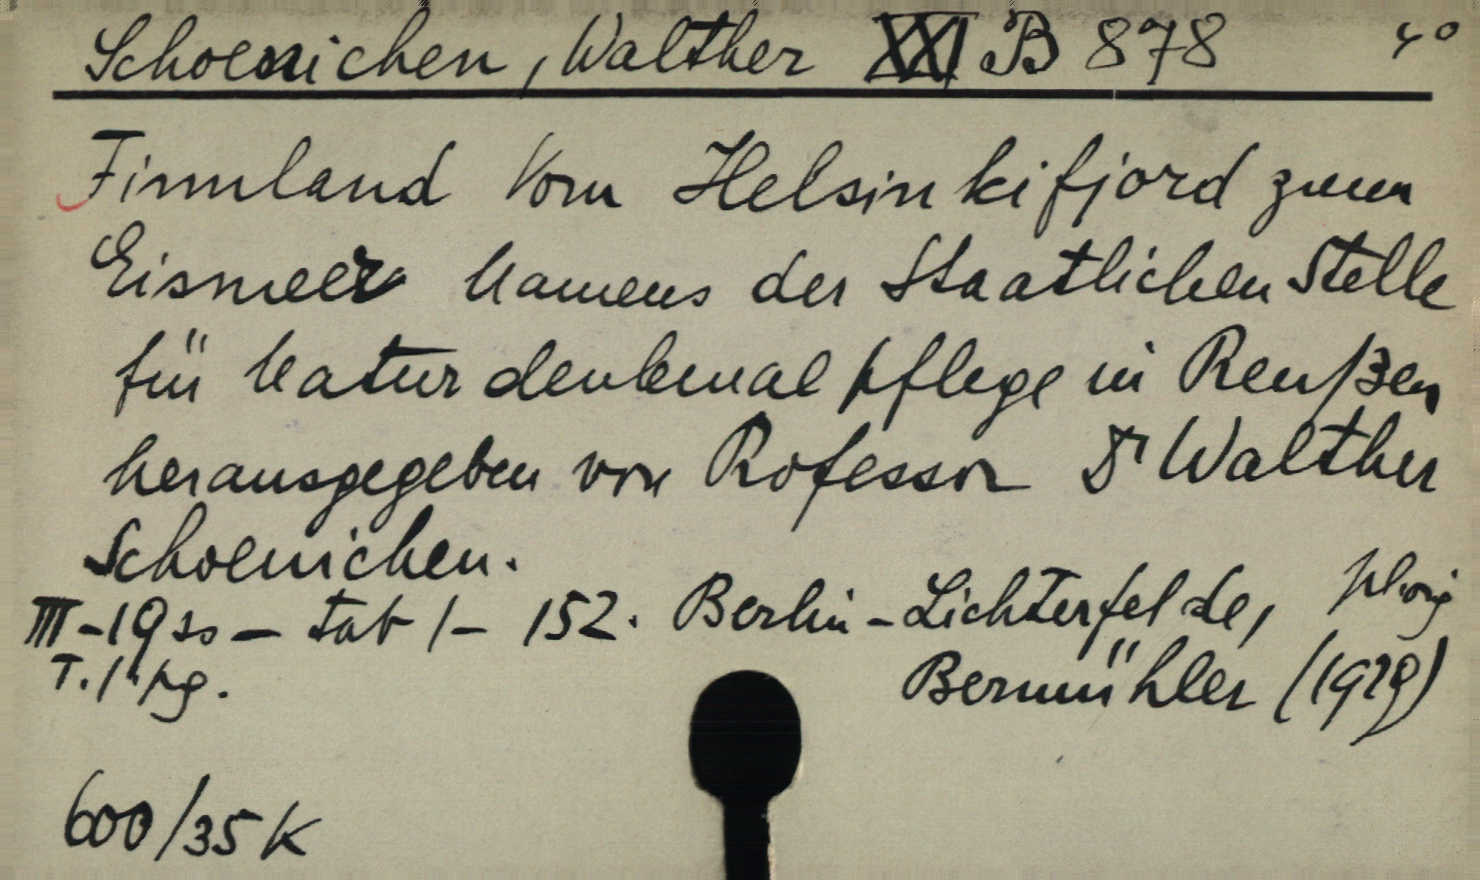 Schoenichen, Walther XXI B 878 4º
Finnland Vom Helsinkifjord zum
Eismeer Namens der Staatlichen Stelle
für Naturdenkmalpflege in Preußen
herausgegeben von Professor Dr Walther
Schoenichen.
III - 19 - tab 1 - 152. Berlin - Lichterfelde,
T. 1 pg. Bermühler (1929)
600/35 K